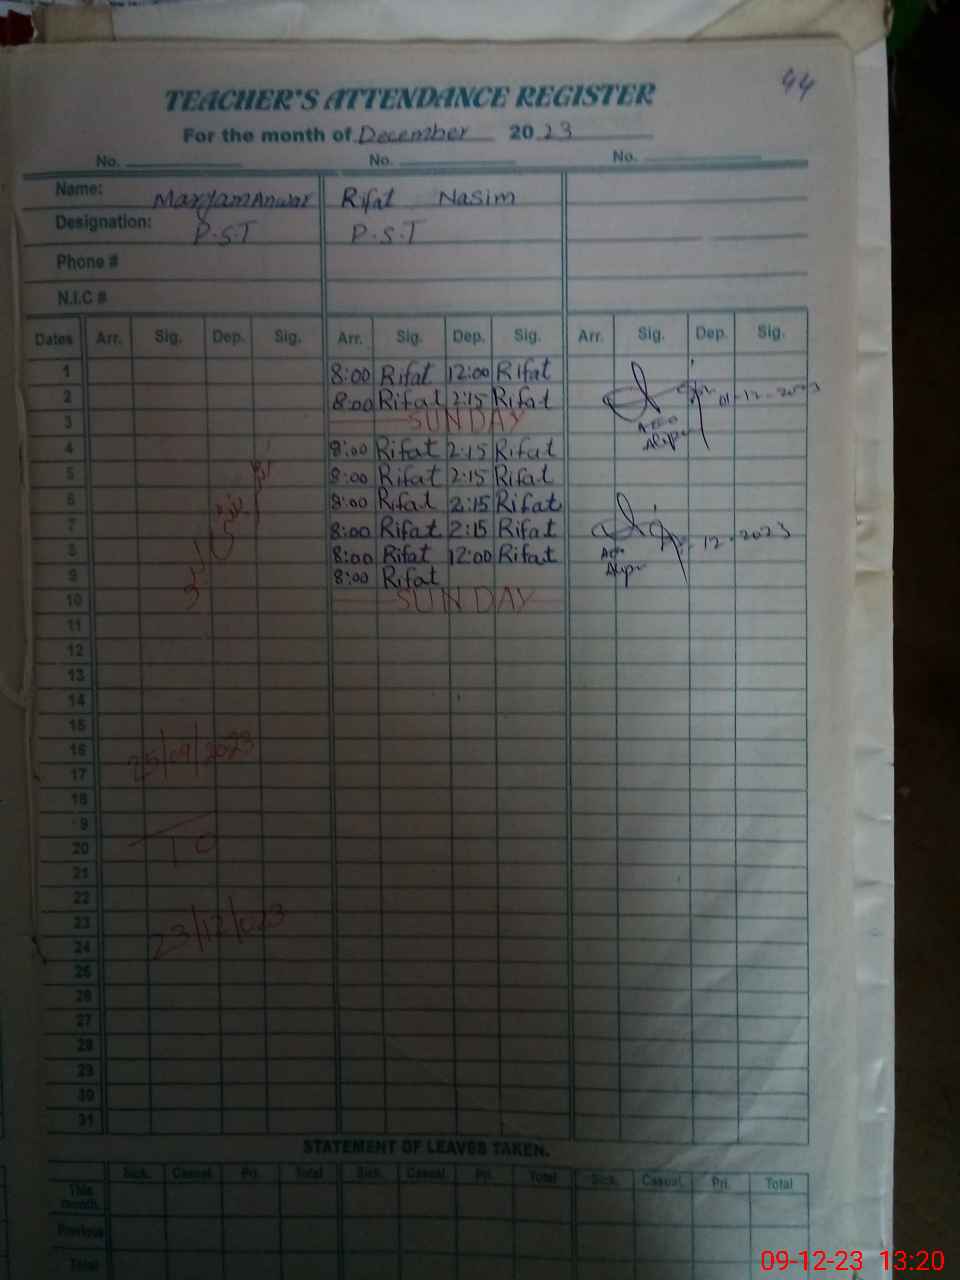 44
TEACHER'S ATTENDANCE REGISTER
For the month of December 2023
No. No. No.
Name: Maryam Anwar Rifat Nasim
Designation: P.S.T P.S.T
Phone #
N.I.C #
Dates Arr. Sig. Dep. Sig. Arr. Sig. Dep. Sig. Arr. Sig. Dep. Sig.
1 8:00 Rifat 12:00 Rifat
2 8:00 Rifat 2:15 Rifat 01-12-2023
3 SUNDAY
4 8:00 Rifat 2:15 Rifat
5 8:00 Rifat 2:15 Rifat
6 8:00 Rifat 2:15 Rifat
7 8:00 Rifat 2:15 Rifat 12-2023
8 8:00 Rifat 12:00 Rifat
9 8:00 Rifat
10 SUNDAY
11
12
13
14
15
16 25/09/2023
17
18
9
20 TO
21
22
23 23/12/023
24
25
26
27
28
29
30
31
STATEMENT OF LEAVES TAKEN.
Sick. Casual. Pri. Total Sick. Casual. Pri. Total Sick. Casual. Pri. Total
This month.
Previous
Total
09-12-23 13:20